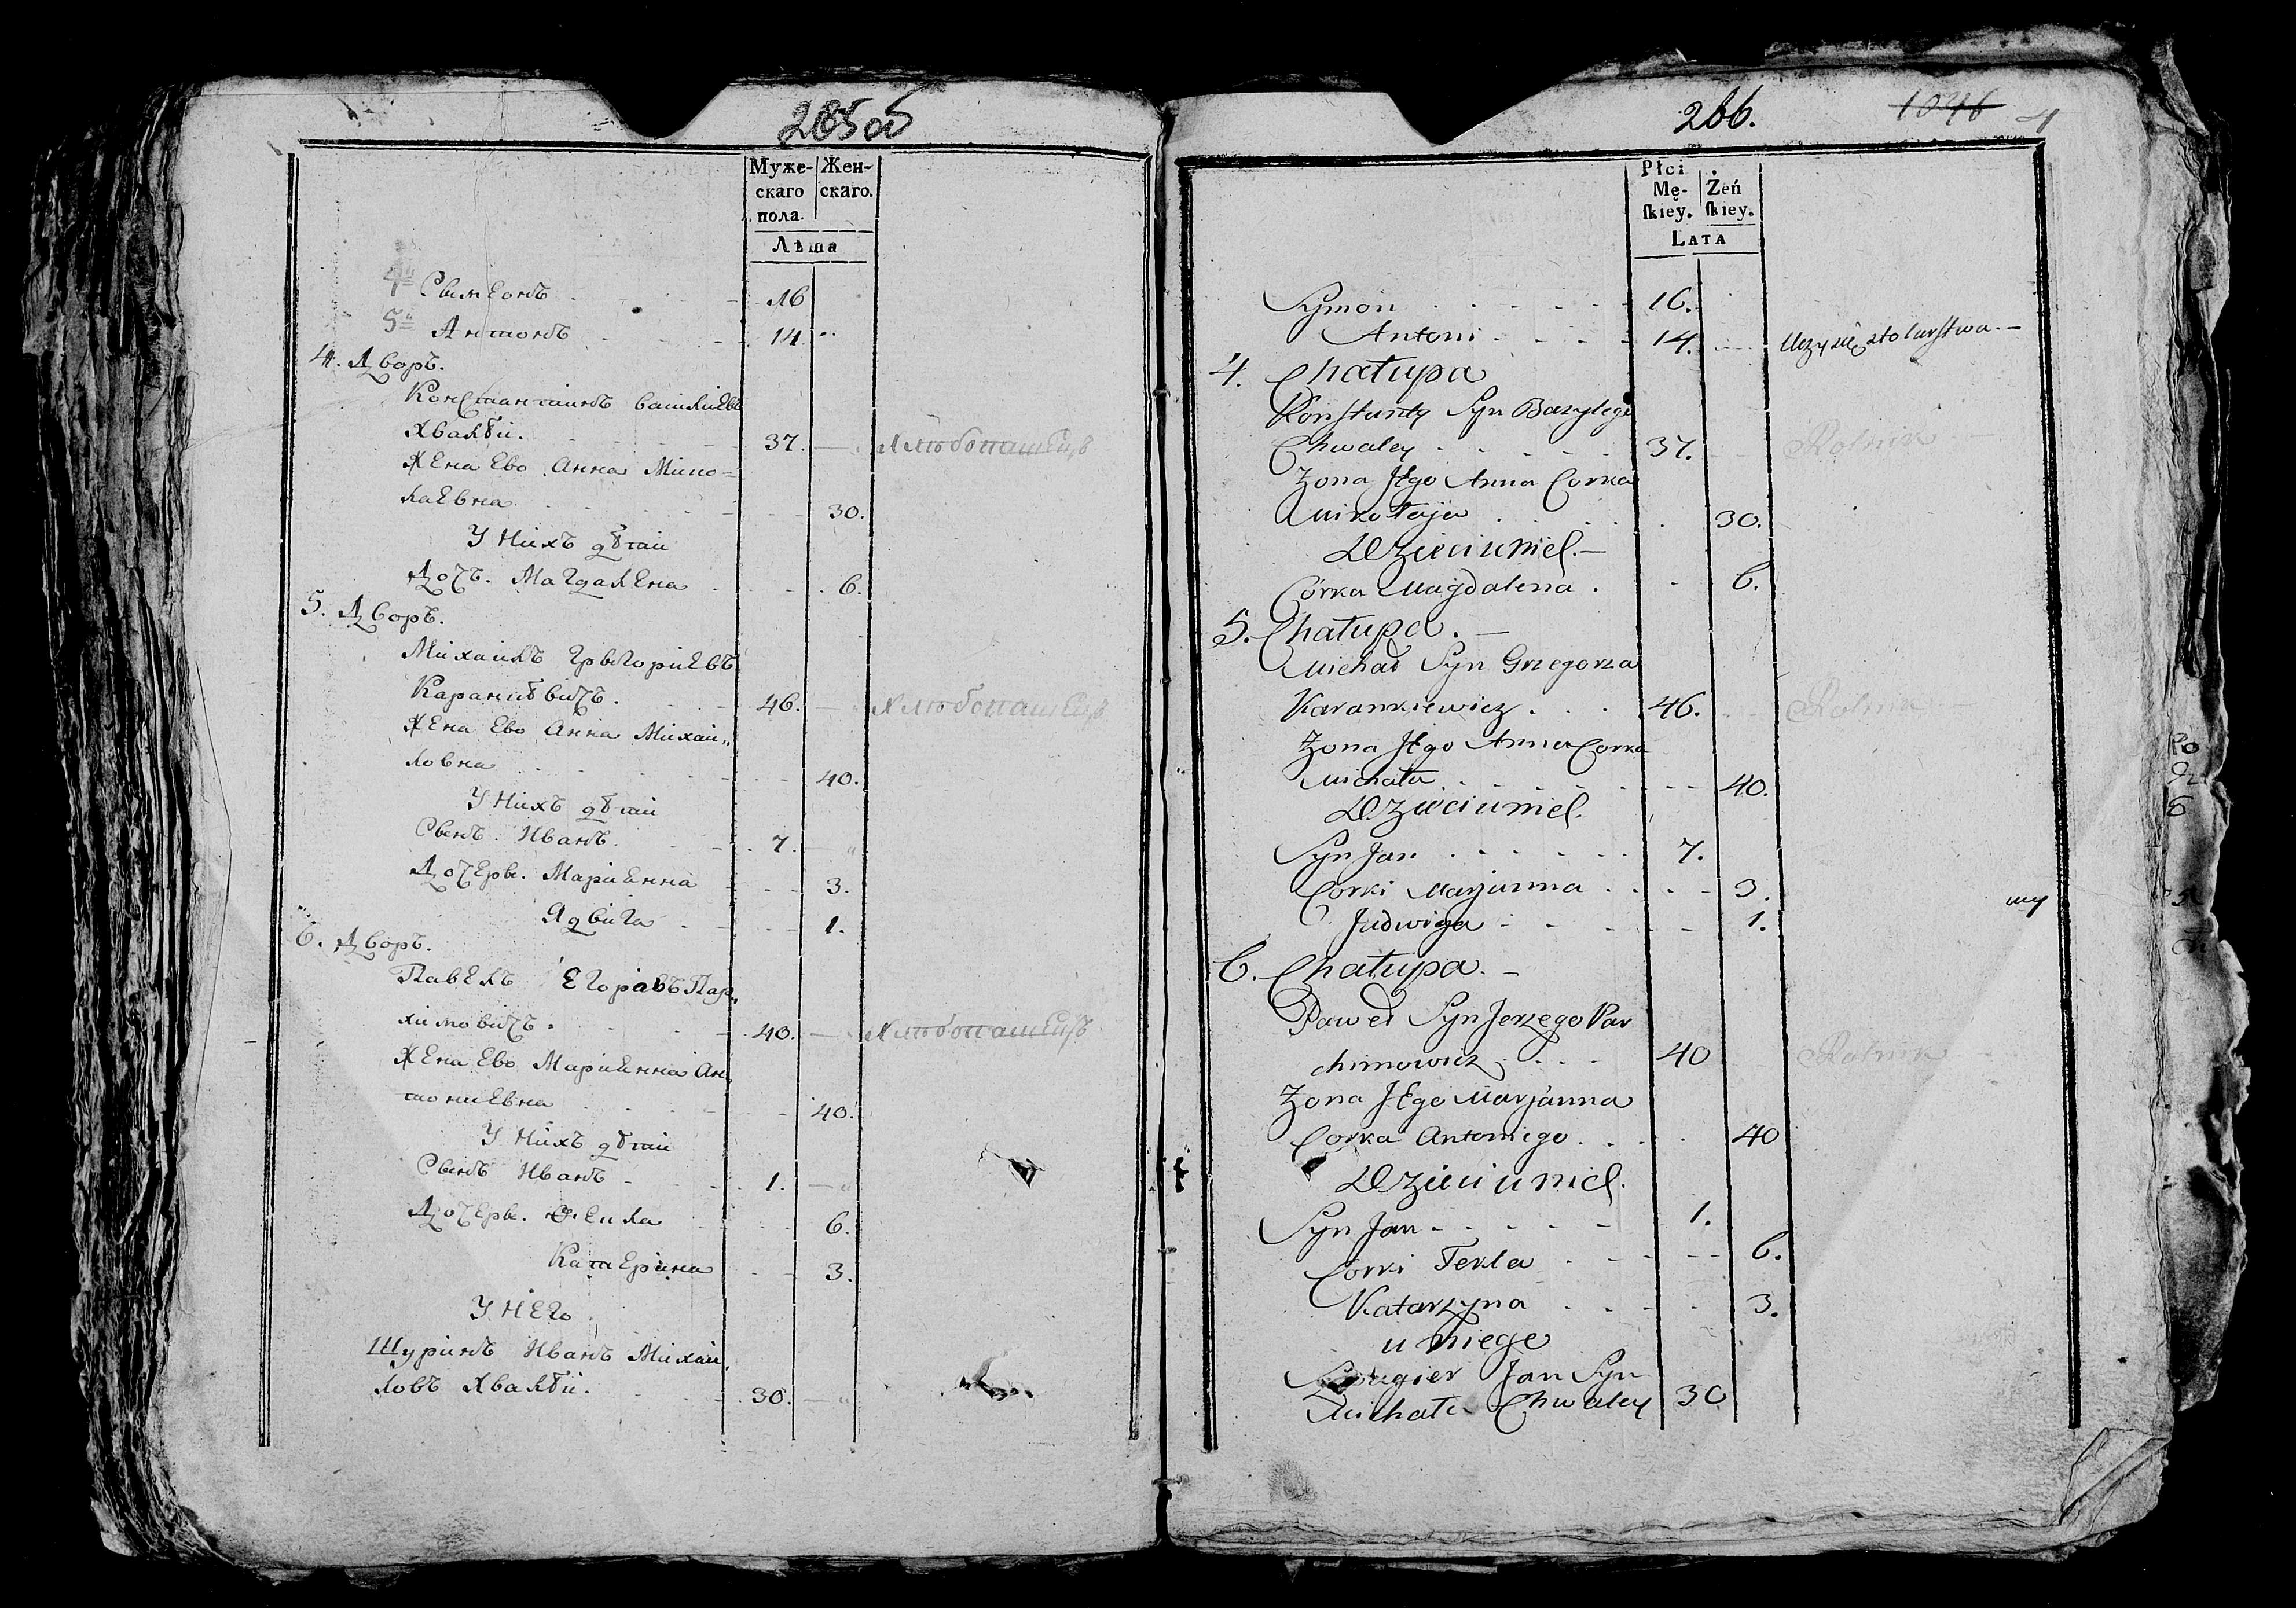 265 об
Муже-
скаго
пола.
Жен-
скаго.
Лѣта
4й Сымонъ 16
5й Антонъ 14
4. Дворъ.
Константинъ Василіевъ
Хвалѣй. 37. Хлѣбопашецъ
Жена Ево Анна Мико-
лаевна 30.
У Нихъ дѣти
Дочь. Магдалена 6.
5. Дворъ.
Михаилъ Грыгоріевъ
Каранкѣвичъ. 46. Хлѣбопашецъ
Жена Ево Анна Михаи„
ловна 40.
У Нихъ дѣти
Сынъ. Иванъ. 7.
Дочеры. Маріанна 3.
Ядвига 1.
6. Дворъ.
Павелъ Егоравъ Пар„
химовичъ. 40. Хлѣбопашецъ
Жена Ево Маріанна Ан„
тоніевна 40.
У Нихъ дѣти
Сынъ Иванъ 1.
Дочеры. Фекла 6.
Катерина 3.
У Него
Шуринъ Иванъ Михаи„
ловъ Хвалѣй. 30.
266.
1046
4
Płci
Mę-
ſkiey.
Żeń
ſkiey.
LATA
Symon 16.
Antoni 14. Uczy się stolarstwa.
4. Chałupa
Konstanty Syn Bazylego
Chwaley 37. Rolnik
Żona Jego Anna Corka
Mikołaja 30.
Dzieci u nich.
Córka Magdalena 6.
5. Chałupa.
Michał Syn Grzegorza
Karankiewicz 46. Rolnik
Żona Jego Anna Corka
Michała 40.
Dzieci u nich.
Syn Jan 7.
Corki Marjanna 3.
Jadwiga 1.
6. Chałupa.
Paweł Syn Jerzego Par
chimowicz 40 Rolnik
Żona Jego Marjanna
Corka Antoniego 40
Dzieci u nich.
Syn Jan 1.
Corki Tekla 6.
Katarzyna 3.
u niego
Szwagier Jan Syn
Michała Chwaley 30